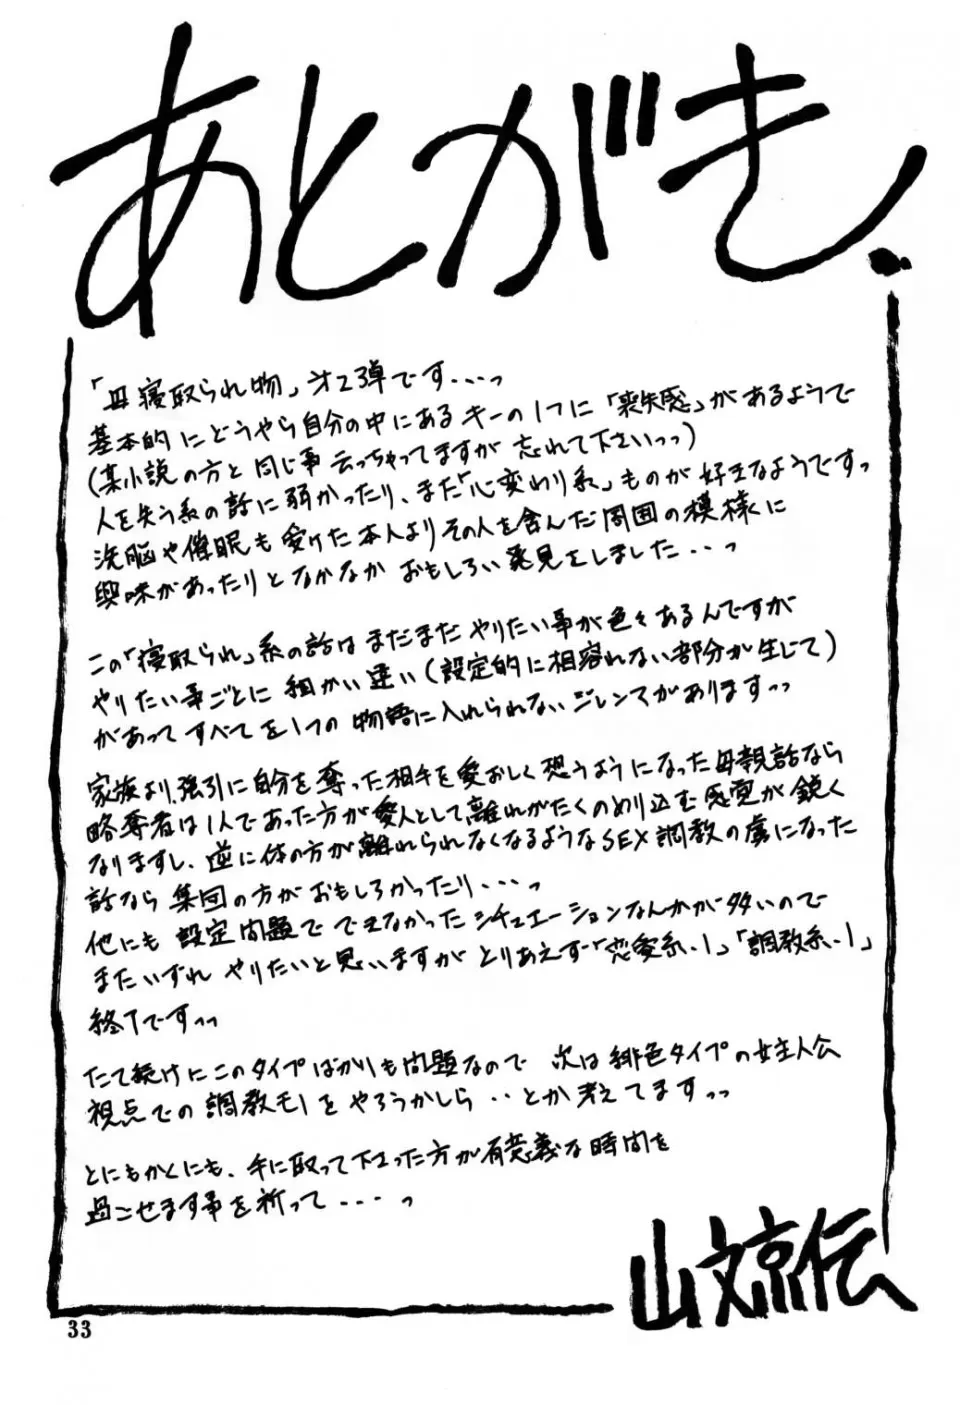 あとがき.
「母寝取られ物」才2弾です...っ
基本的にどうやら自分の中にあるキーの1つに「喪失感」があるようで
(某小説の方と同じ事云っちゃってますが忘れて下さいっっ)
人を失う系の話に弱かったり、また「心変わり系」ものが好きなようですっ
洗脳や催眠も受けた本人よりその人を含んだ周囲の模様に
興味があったりとなかなかおもしろい発見をしました...っ
この「寝取られ」系の話はまだまだやりたい事が色々あるんですが
やりたい事ごとに細かい違い(設定的に相容れない部分が生じて)
があってすべてを1つの物語に入れられないジレンマがありますっっ
家族より、強引に自分を奪った相手を愛おしく想うようになった母親話なら
略奪者は1人であった方が愛人として離れがたくのめり込む感覚が鋭く
なりますし、逆に体の方が離れられなくなるようなSEX調教の虜になった
話なら集団の方がおもしろかったり...っ
他にも設定問題でできなかったシチュエーションなんかが多いので
またいずれやりたいと思いますがとりあえず「恋愛系.1」「調教系.1」
終了ですっっ
たて続けにこのタイプばかりも問題なので次は緋色タイプの女主人公
視点での調教モノをやろうかしら..とか考えてますっっ
とにもかくにも、手に取って下さった方が有意義な時間を
過ごせます事を祈って....っ
山文京伝
33